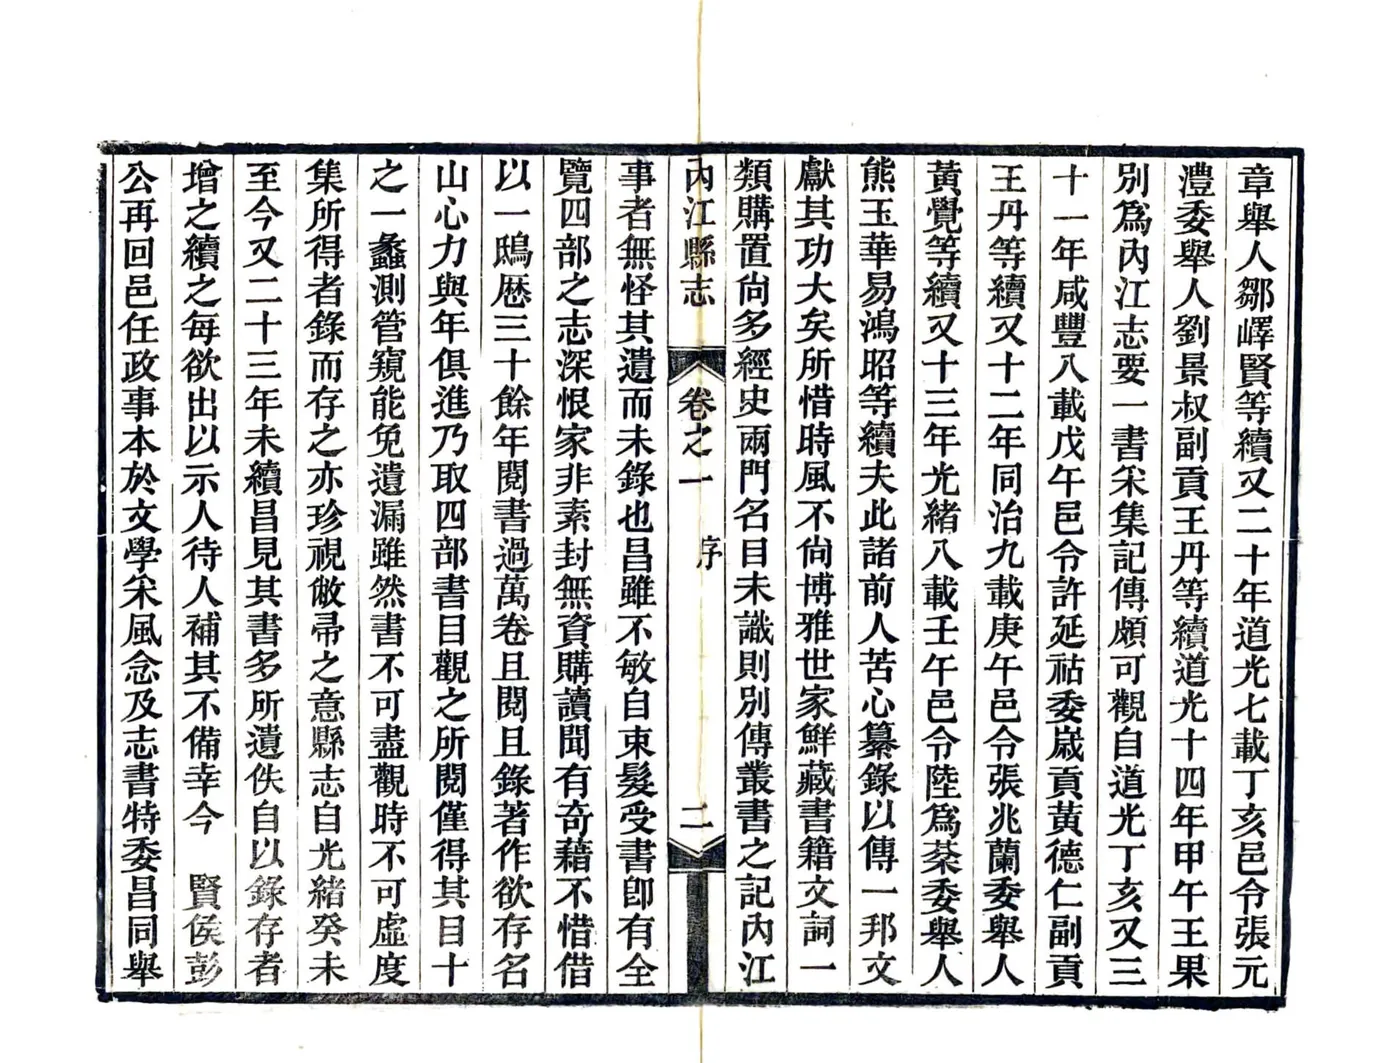 章舉人鄒嶧賢等續又二十年道光七載丁亥邑令張元
澧委舉人劉景叔副貢王丹等續道光十四年甲午王果
別爲內江志要一書采集記傳頗可觀自道光丁亥又三
十一年咸豐八載戊午邑令許延祜委嵗貢黃德仁副貢
王丹等續又十二年同治九載庚午邑令張兆蘭委舉人
黃覺等續又十三年光緒八載壬午邑令陸爲棻委舉人
熊玉華易鴻昭等續夫此諸前人苦心纂錄以傳一邦文
獻其功大矣所惜時風不尙博雅世家鮮藏書籍文詞一
類購置尙多經史兩門名目未識則別傳叢書之記內江
內江縣志 卷之一 序 二
事者無怪其遺而未錄也昌雖不敏自束髮受書卽有全
覽四部之志深恨家非素封無資購讀聞有奇藉不惜借
以一鴟歷三十餘年閱書過萬卷且閱且錄著作欲存名
山心力與年俱進乃取四部書目觀之所閱僅得其目十
之一蠡測管窺能免遺漏雖然書不可盡觀時不可虛度
集所得者錄而存之亦珍視敝帚之意縣志自光緒癸未
至今又二十三年未續昌見其書多所遺佚自以錄存者
增之續之每欲出以示人待人補其不備幸今 賢侯彭
公再回邑任政事本於文學宋風念及志書特委昌同舉